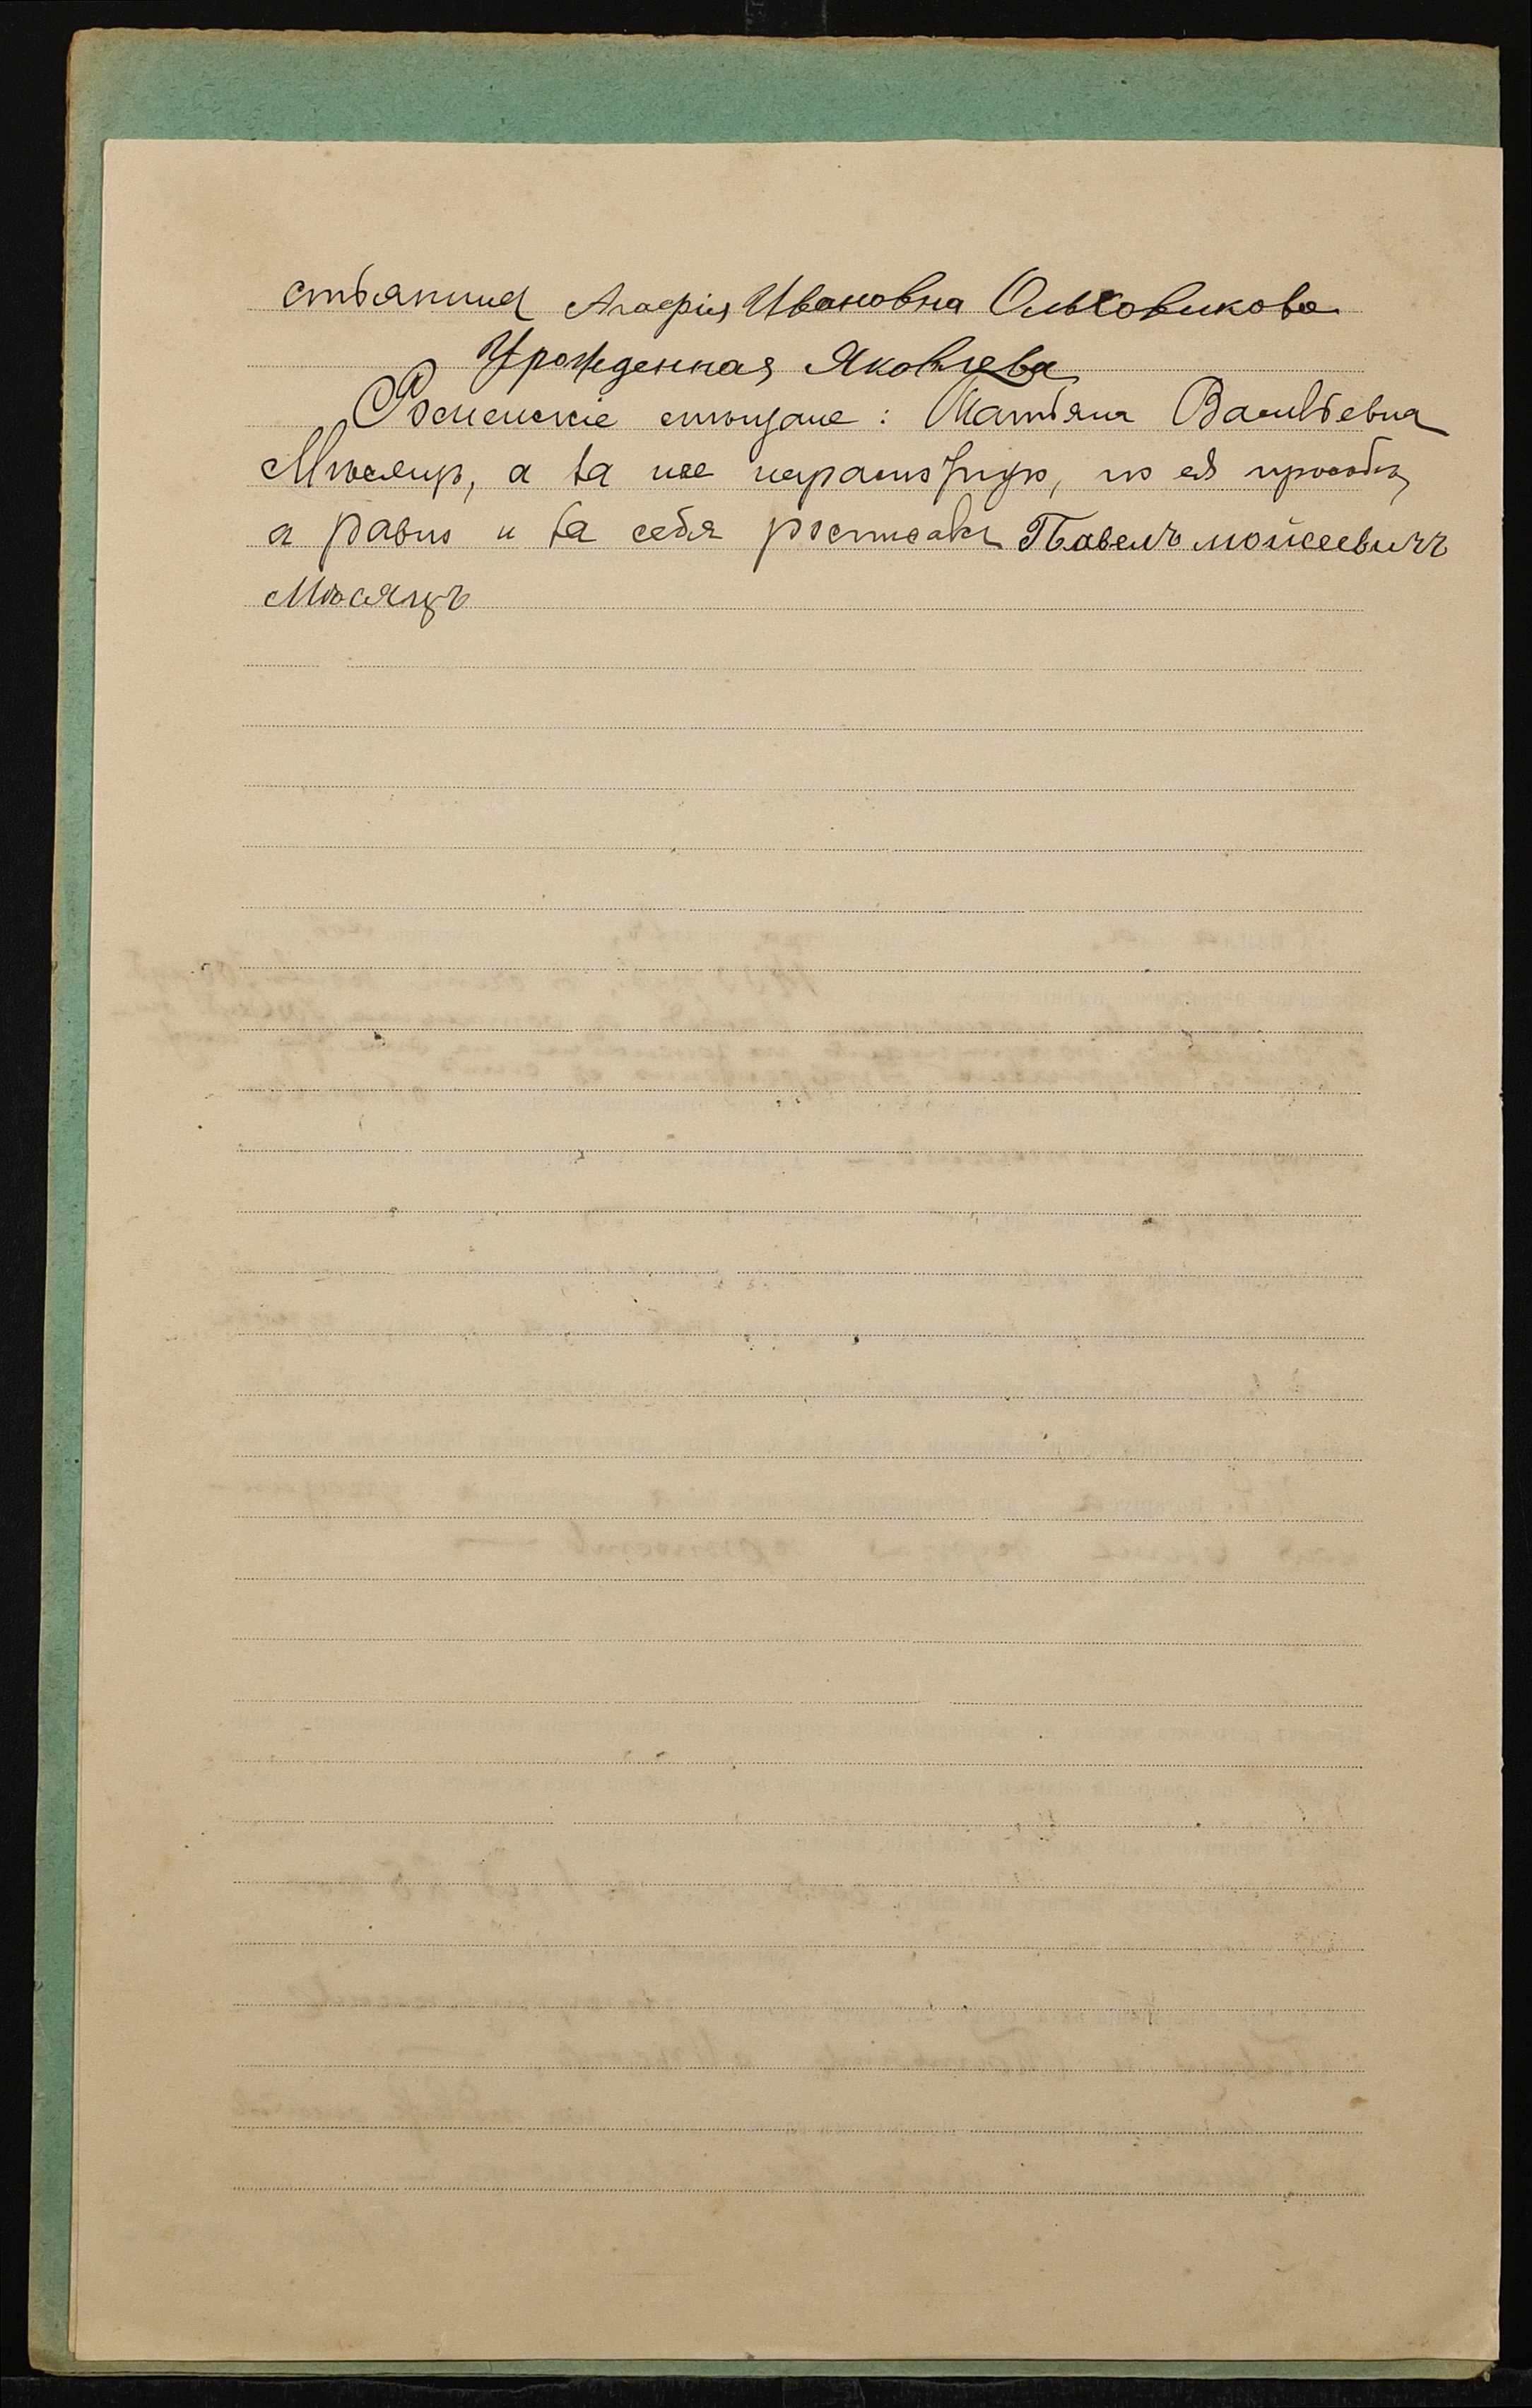 стьянина Агафія Ивановна Ольховикова
Урожденная Яковлева
Роменскіе мѣщане: Татьяна Васильевна
Мѣсяцъ, а за нее неграмотную, по ея просьбѣ,
а равно и за себя росписался Павелъ мойсеевичъ
Мѣсяцъ